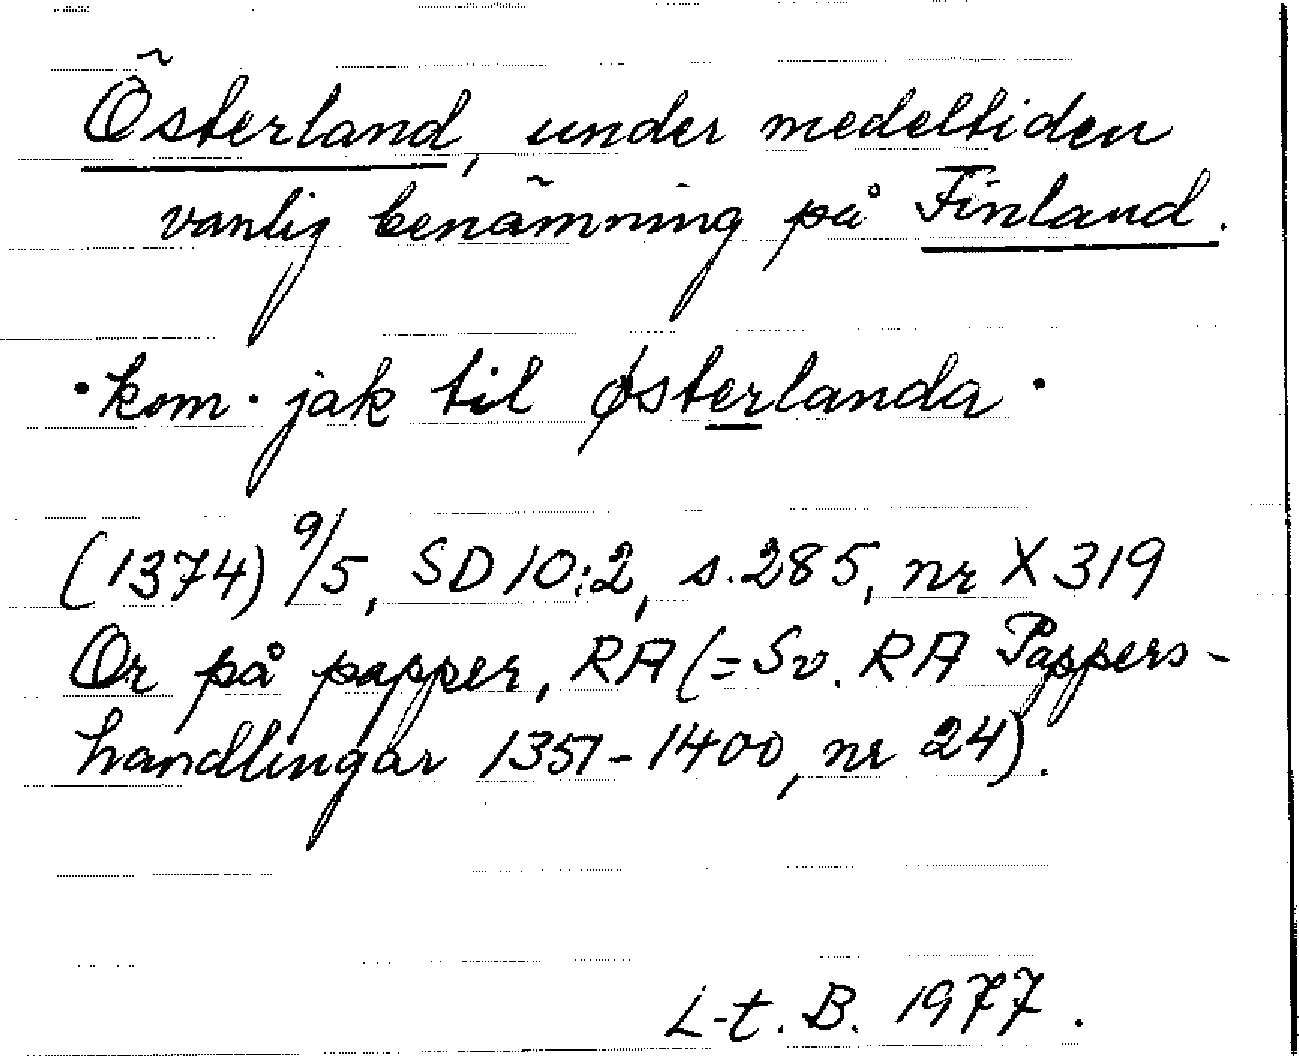 Österland, under medeltiden
vanlig benämning på Finland.
· kom · jak til østerlanda ·
(1374) 9/5, SD 10:2, s. 285, nr X 319
Or på papper, RA (= Sv. RA Pappers-
handlingar 1351-1400, nr 24).
L-t. B. 1977.